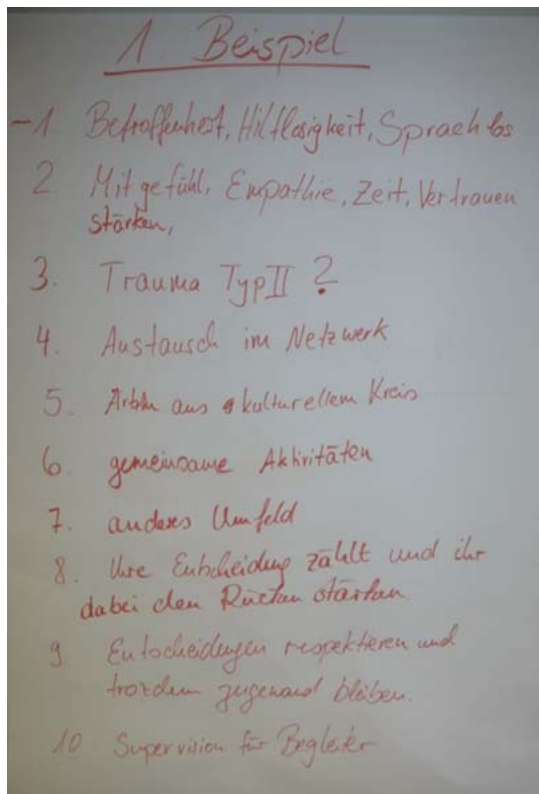 1. Beispiel
- 1. Betroffenheit, Hilflosigkeit, Sprachlos
2. Mitgefühl, Empathie, Zeit, Vertrauen
stärken,
3. Trauma Typ II ?
4. Austausch im Netzwerk
5. aus kulturellem Kreis
6. gemeinsame Aktivitäten
7. anderes Umfeld
8. Ihre Entscheidung zählt und ihr
dabei den Rücken stärken.
9 Entscheidungen respektieren und
trozdem zugewand bleiben.
10 Supervision für Begleiter